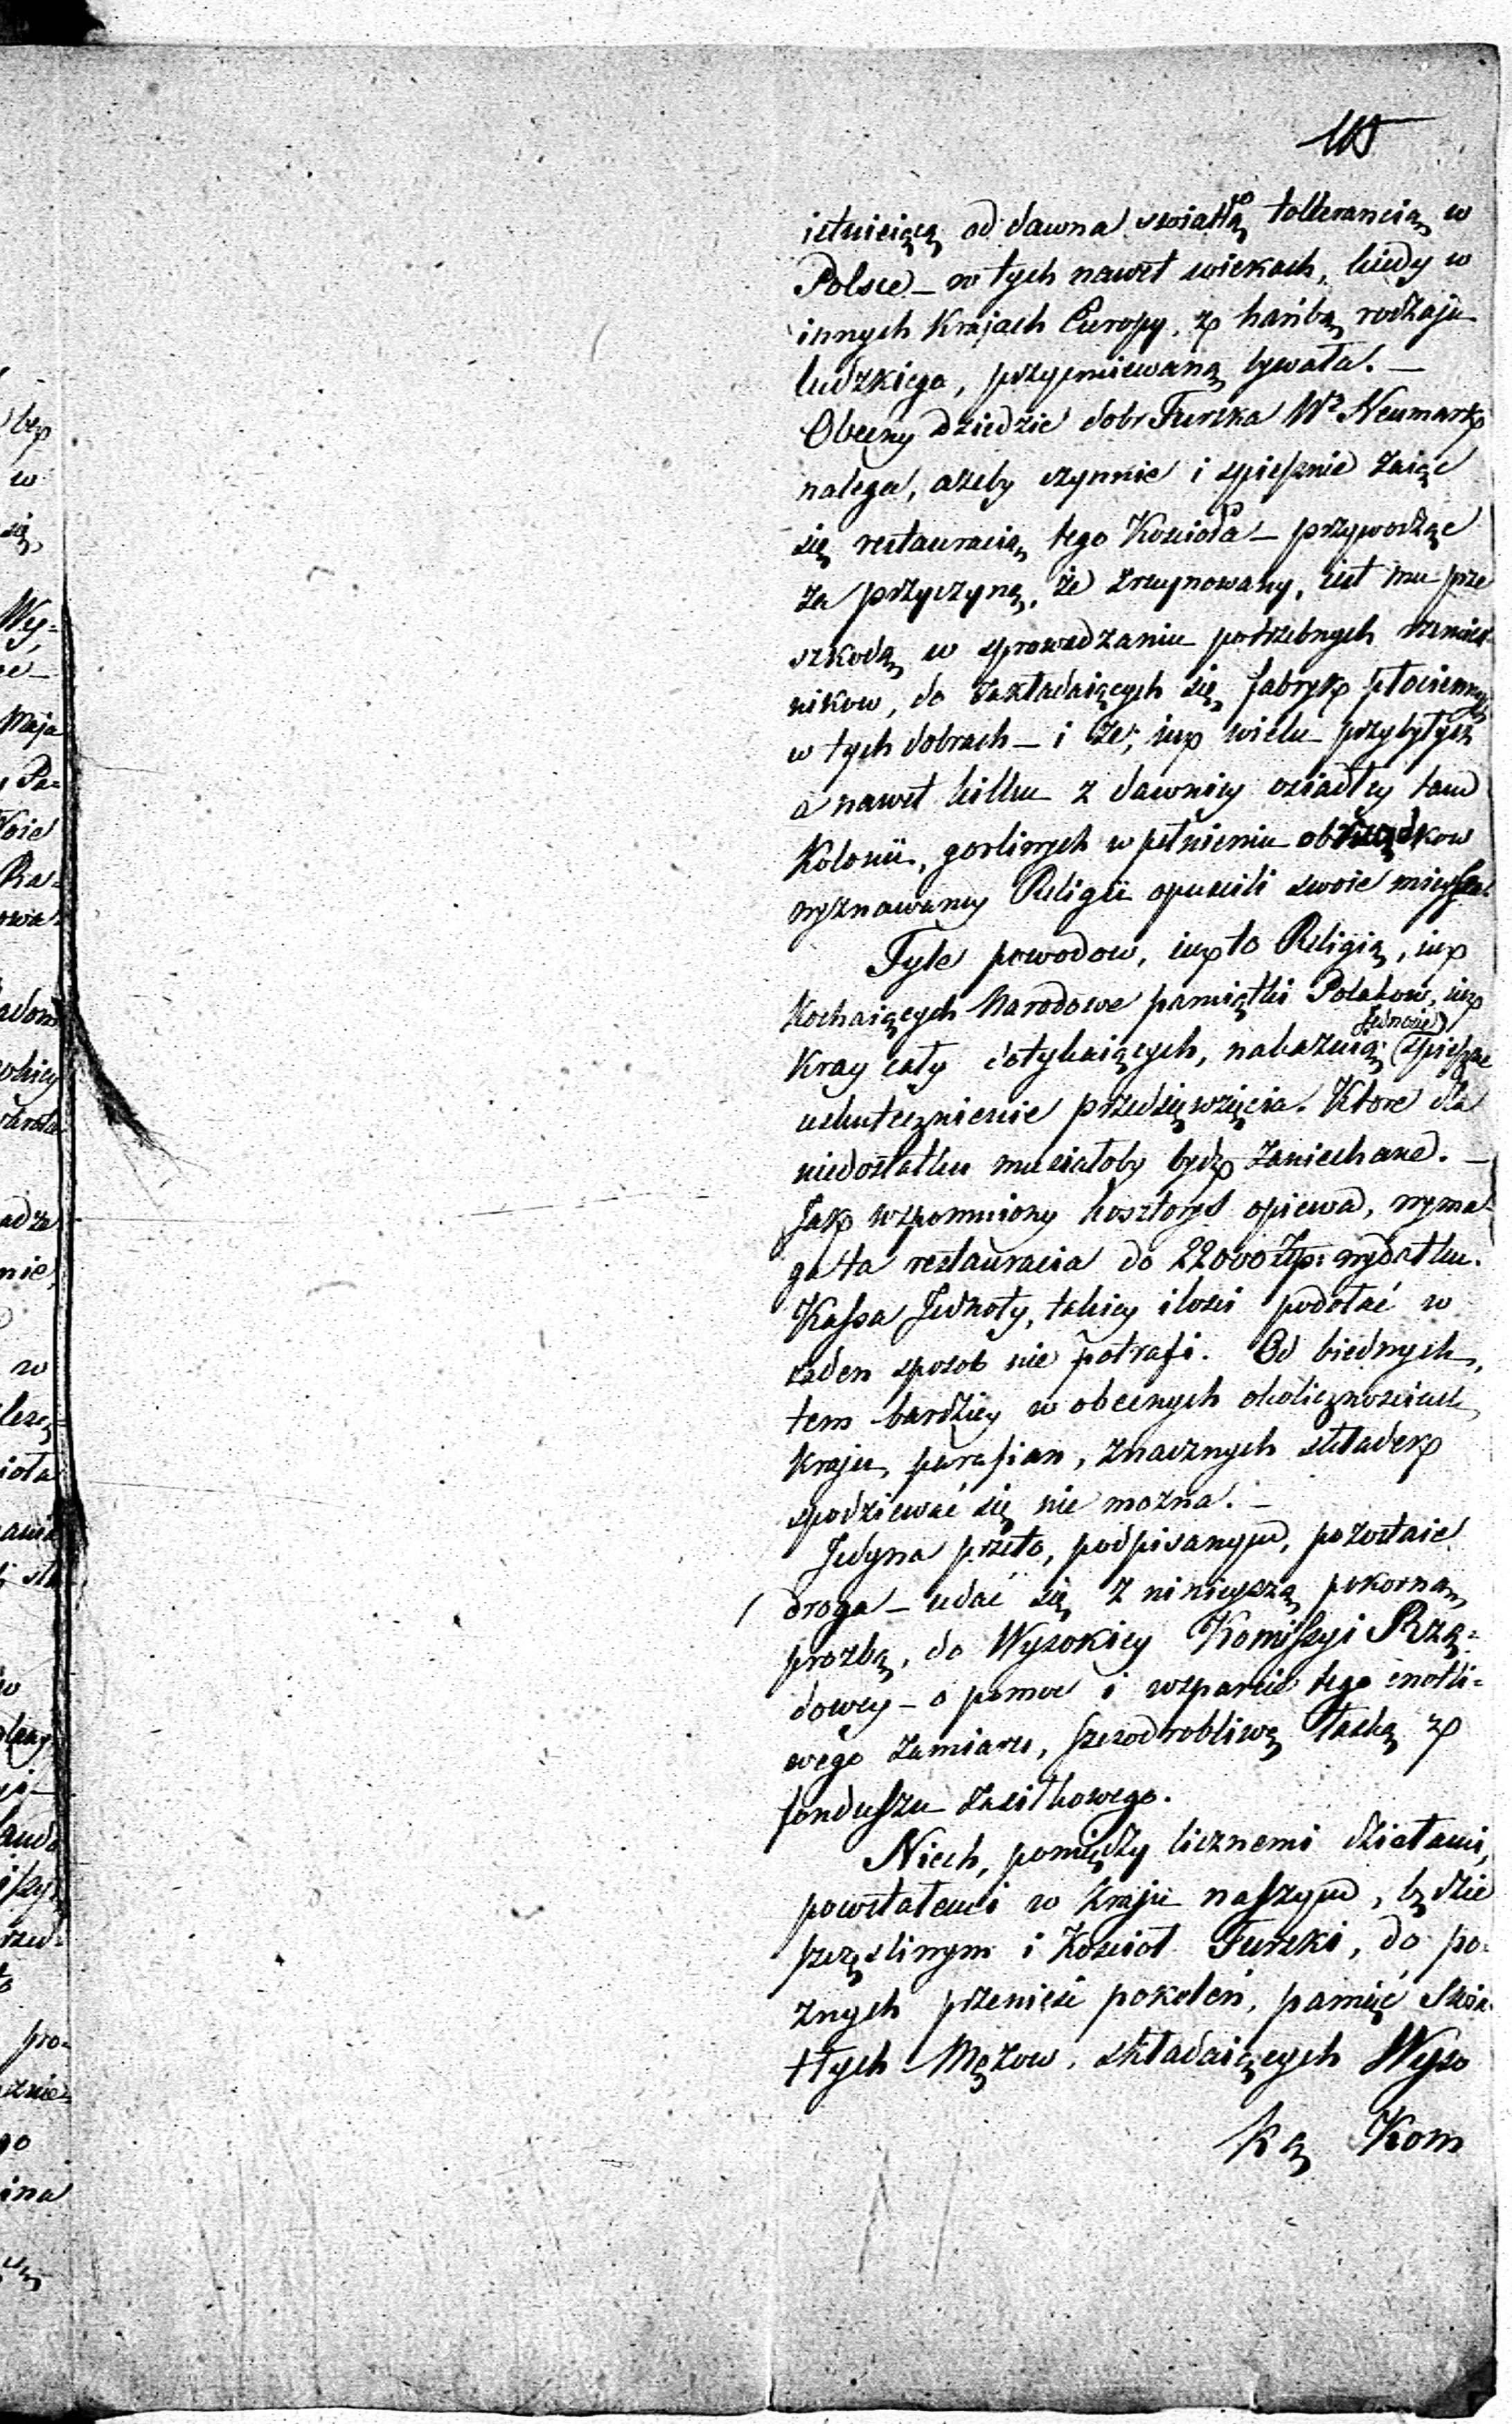 115
istnieiącą od dawna światłą tollerancią w
Polsce – w tych nawet wiekach, kiedy w
innych Krajach Europy, z hańbą rodzaju
ludzkiego, przyćmiewaną bywała. –
Obecny Dziedzic dobr Turzka Wº Neumark
nalega, ażeby czynnie i spiesznie zaiąć
się restauracią tego Kościoła – przywodząc
za przyczynę, że zruynowany, iest mu prze
szkodą w sprowadzaniu potrzebnych rzemieśl-
nikow, do zakładaiących się fabryk płóciennych
w tych dobrach – i że, iuż wielu przybyłych
a nawet kilku z dawniey osiadłey tam
Kolonii, gorliwych w pełnieniu obrządkow
wyznawaney Religii opuścili swoie mieysca.
Tyle powodow, iuż to Religią, iuż
kochaiących Narodowe pamiątki Polakow, iuż
Kray cały dotykaiących, nakazuią Jednocie śpieszne
uskutecznienie przedsięwzięcia. Ktore dla
niedostatku musiałoby bydź zaniechane. –
Jak wspomniony kosztorys opiewa, wyma-
ga ta restauracia do 22000 Złp: wydatku.
Kassa Jednoty, takiey ilości podołać w
żaden sposob nie potrafi. Od biednych,
tem bardziey w obecnych okolicznościach
kraju, parafian, znacznych składek
spodziewać się nie można. –
Jedyna przeto, podpisanym, pozostaie
droga – udać się z ninieyszą pokorną
prozbą, do Wysokiey Komissyi Rzą-
dowey – o pomoc i wsparcie tego cnotli-
wego zamiaru, szczodrobliwą łaską z
fonduszu zasiłkowego.
Niech, pomiędzy licznemi działami,
powstałemi w Kraju naszym, będzie
szczęśliwym i Kościoł Turzki, do po-
znych przenieść pokoleń, pamięć Świa-
tłych Mężow, składaiących Wyso
ką Kom